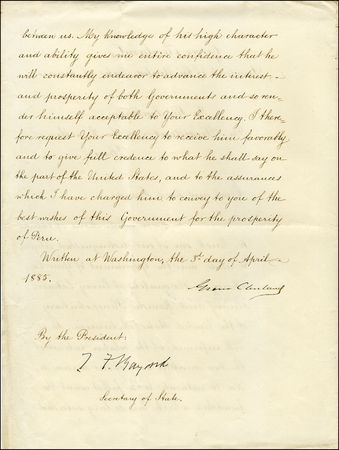 between us. My knowledge of his high character
and ability gives me entire confidence that he
will constantly endeavor to advance the interest
and prosperity of both Governments and so ren-
der himself acceptable to Your Excellency. I there-
fore request Your Excellency to receive him favorably
and to give full credence to what he shall say on
the part of the United States, and to the assurances
which I have charged him to convey to you of the
best wishes of this Government for the prosperity
of Peru.
Written at Washington, the day of April
1885.
Grover Cleveland
By the President:
T. F. Bayard
Secretary of State.